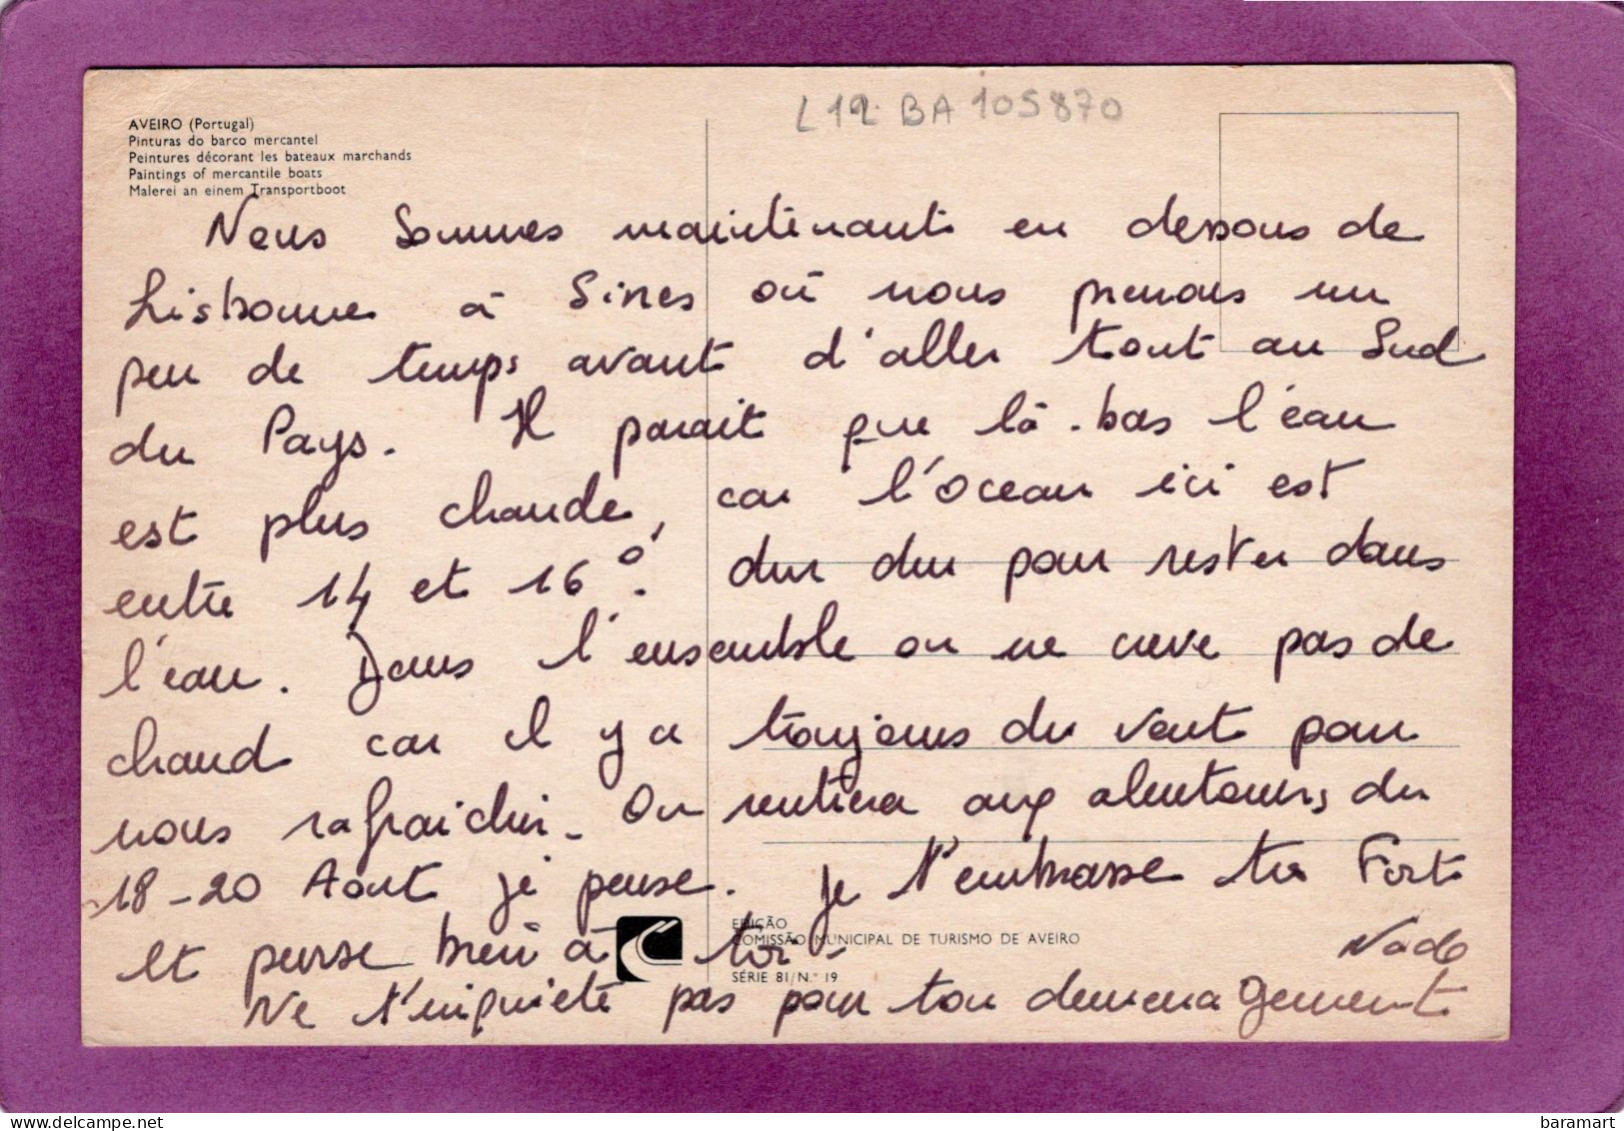 L12. BA 105870
AVEIRO (Portugal)
Pinturas do barco mercantel
Peintures décorant les bateaux marchands
Paintings of mercantile boats
Malerei an einem Transportboot
Nous Sommes maintenant en dessous de
Lisbonne à Sines où nous prenons un
peu de temps avant d'aller tout au Sud
du Pays. Il parait que là-bas l'eau
est plus chaude, car l'océan ici est
entre 14 et 16°. dur dur pour rester dans
l'eau. Dans l'ensemble on ne crève pas de
chaud car il y a toujours du vent pour
nous rafraichir. On rentrera aux alentours du
18-20 Aout je pense. Je t'embrasse très Fort
et pense bien à toi.
Nado
EDIÇÃO
COMISSÃO MUNICIPAL DE TURISMO DE AVEIRO
SÉRIE 81/N.º 19
Ne t'inquiète pas pour ton demenagement
baramart